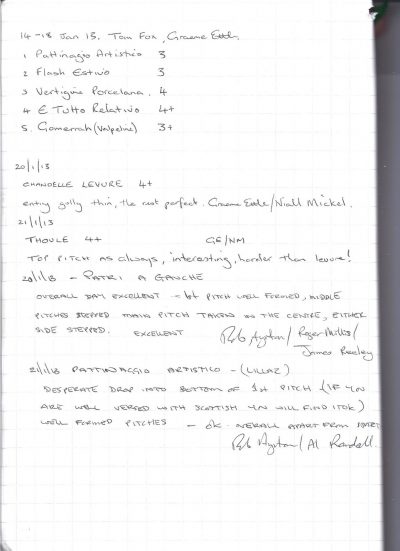 14-18 Jan 13, Tom Fox, Graeme Ettle.
1 Pattinagio Artistico 3
2 Flash Estivo 3
3 Vertigine Porcelana. 4
4 E Tutto Relativo 4+
5. Gomerrah (Valpeline) 3+
20/1/13
CHANDELLE LEVURE 4+
entry gully thin, the rest perfect. Graeme Ettle/Niall Mickel.
21/1/13
THOULE 4+ GE/NM
TOP PITCH AS always, interesting, harder than levure!
20/1/13 - PATRI A GAUCHE
OVERALL DAY EXCELLENT - 1st PITCH WELL FORMED, MIDDLE
PITCHES STEPPED MAIN PITCH TAKEN IN THE CENTRE, EITHER
SIDE STEPPED. EXCELLENT Rob Ayrton/
James
21/1/13 PATTINAGGIO ARTISTICO - (LILLAZ)
DESPERATE DROP INTO BOTTOM OF 1st PITCH (IF YOU
ARE WELL VERSED WITH SCOTTISH YOU WILL FIND IT OK)
WELL FORMED PITCHES - OK OVERALL APART FROM START
Rob Ayrton/Al Randall.